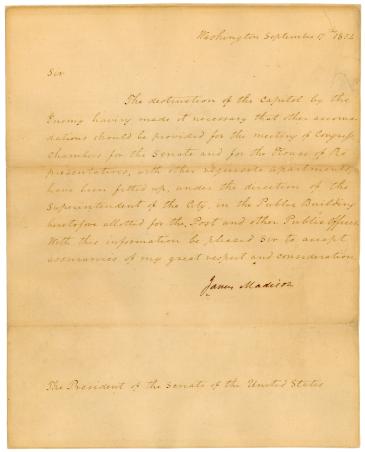 Washington September 17th 1814
Sir
The destruction of the Capitol by the
Enemy having made it necessary that other accomo
dations should be provided for the meeting of Congress
Chambers for the Senate and for the House of Re
presentatives, with other requisite apartments,
have been fitted up, under the direction of the
Superintendent of the City, in the Public Building
heretofore allotted for the Post and other Public Offices.
With this information be pleased Sir to accept
assurances of my great respect and consideration
James Madison
The President of the Senate of the United States